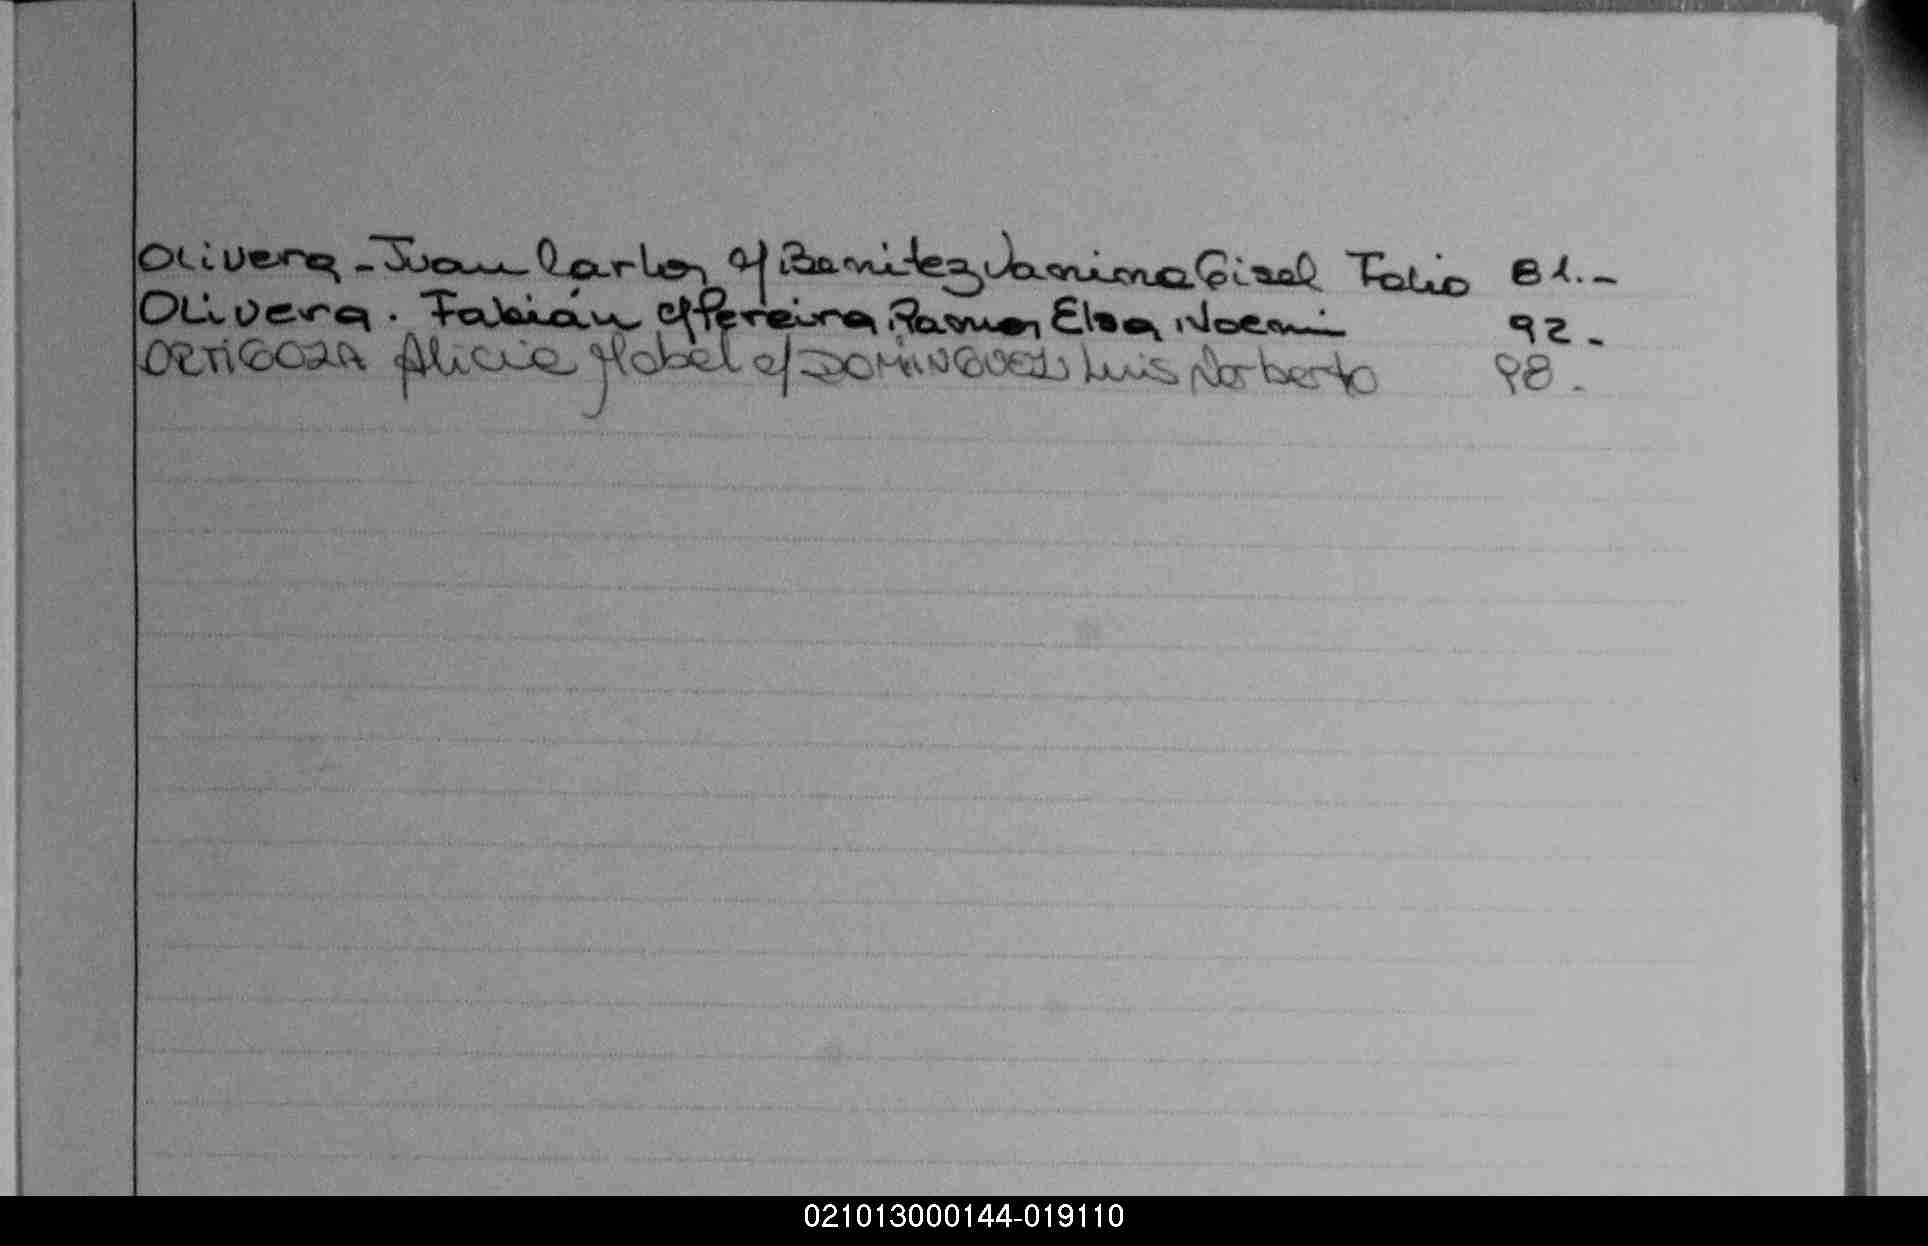 Olivera - Juan Carlos c/ Benitez Vanina Gisel Folio 81.-
Olivera. Fabián c/ Pereira Ramos Elsa Noemi 92.-
ORTIGOZA Alicia Mabel c/ DOMINGUEZ Luis Norberto 98.
021013000144-019110